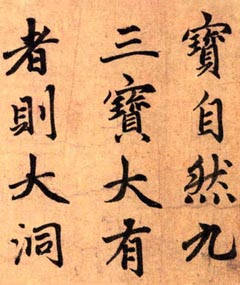 寶自然九
三寶大有
者則大洞